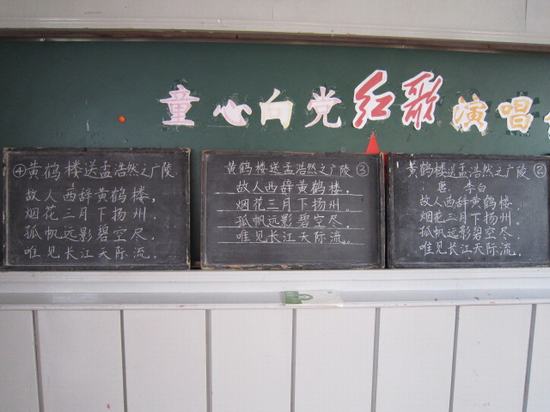 童心向党红歌演唱
㊉黄鹤楼送孟浩然之广陵
故人西辞黄鹤楼，
烟花三月下扬州。
孤帆远影碧空尽，
唯见长江天际流。
黄鹤楼送孟浩然之广陵
故人西辞黄鹤楼，
烟花三月下扬州。
孤帆远影碧空尽，
唯见长江天际流。
黄鹤楼送孟浩然之广陵
唐 李白
故人西辞黄鹤楼，
烟花三月下扬州。
孤帆远影碧空尽，
唯见长江天际流。